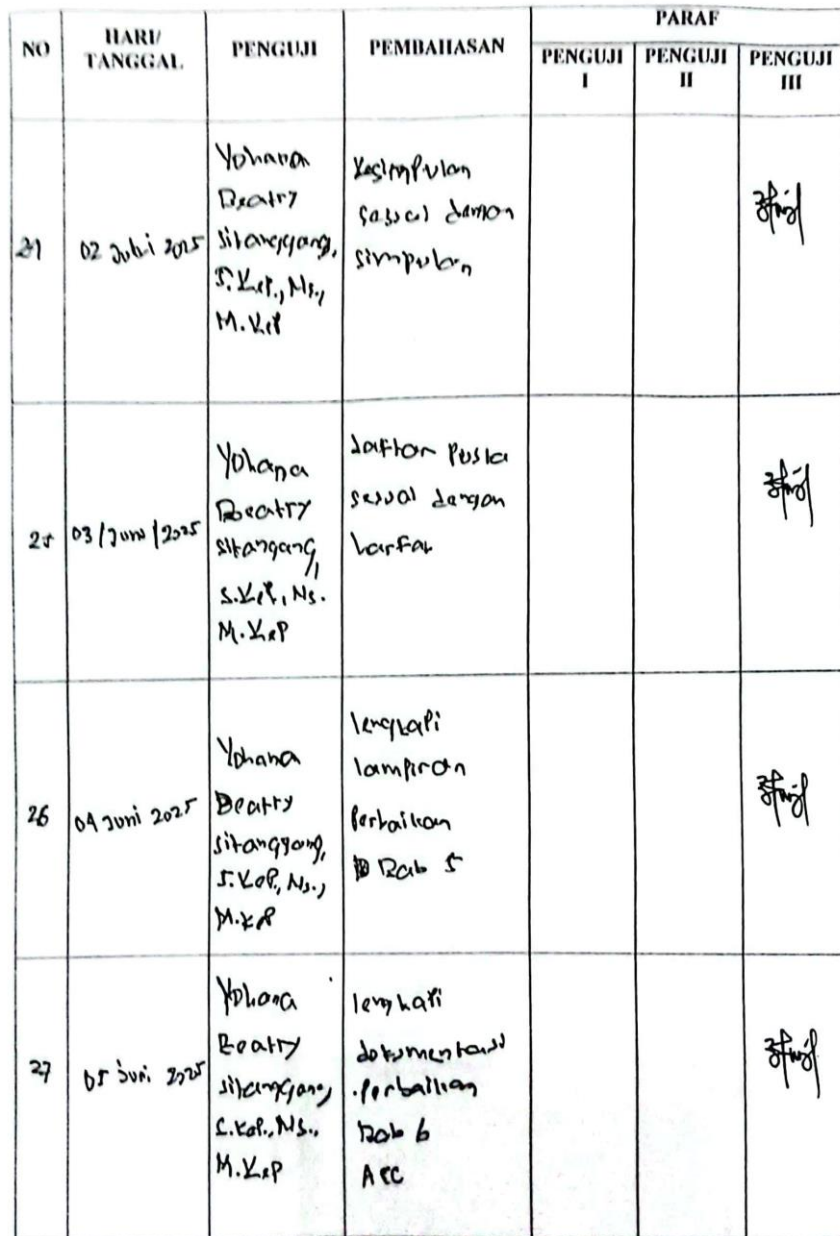 PARAF
NO HARI/ TANGGAL PENGUJI PEMBAHASAN PENGUJI I PENGUJI II PENGUJI III
21
02 Juli 2025
Yohana
Beatry
Sitanggang,
S.Kep., Ns.,
M.Kep
Kesimpulan
sesuai
simpulan
25
03/Juni/2025
Yohana
Beatry
Sitanggang,
S.Kep, Ns.
M.Kep
daftar Puska
sesuai dengan
26
04 Juni 2025
Yohana
Beatry
sitanggang,
S.Kep., Ns.,
M.Kep
lengkapi
lampiran
Perbaikan
Bab 5
27
05 Juni 2025
Yohana
Beatry
sitanggang,
S.Kep., Ns.,
M.Kep
lengkapi
dokumentasi
perbaikan
Bab 6
ACC